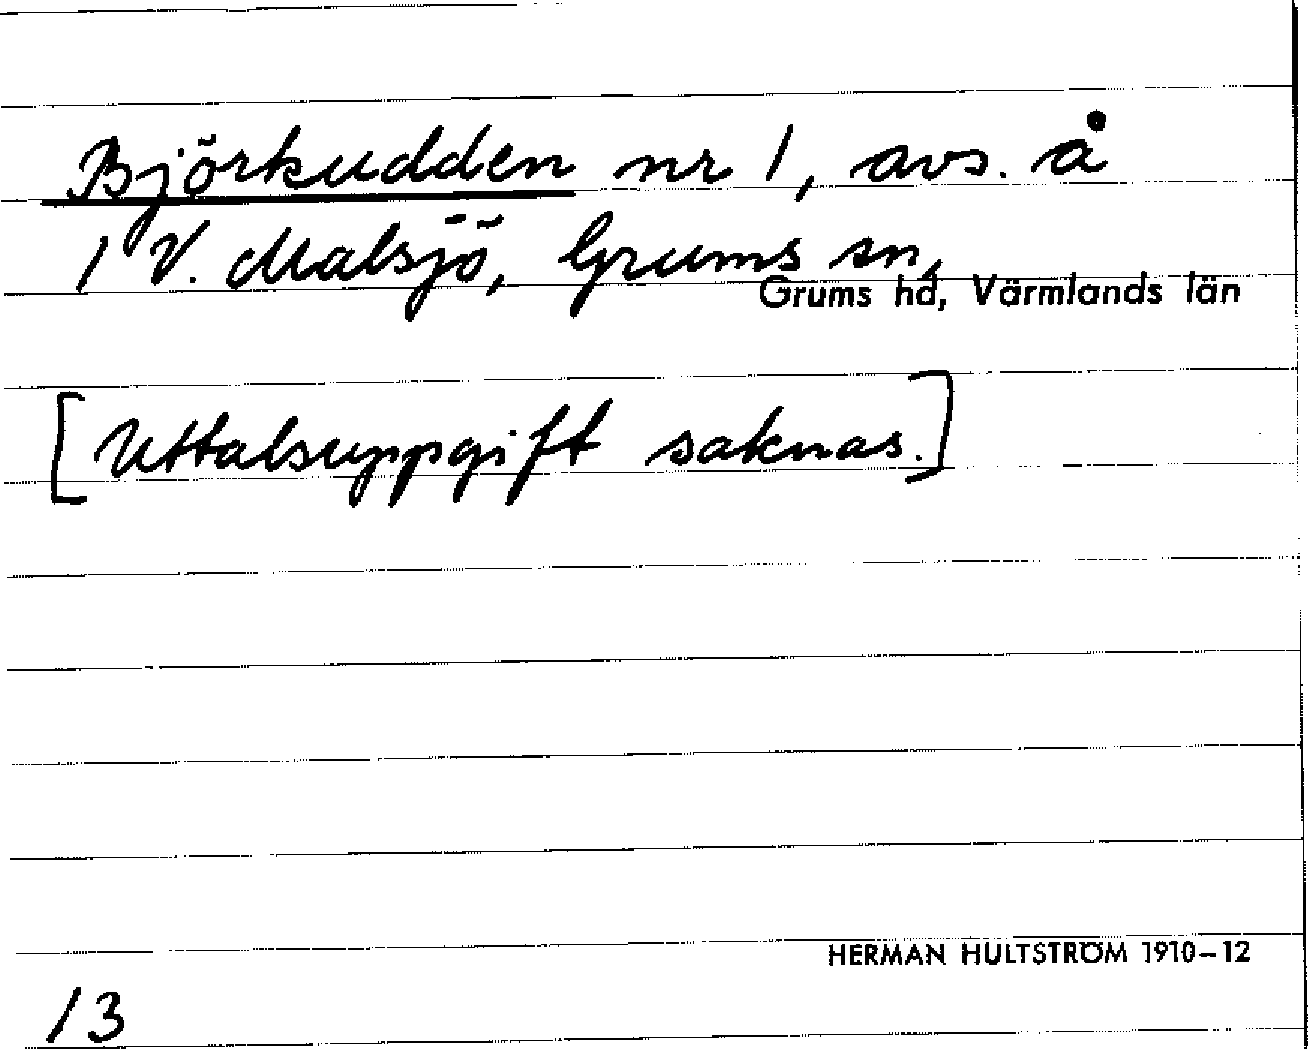 Björkudden nr 1, avs. å
1 V. Malsjö, Grums sn,
Grums hd, Värmlands län
[Uttalsuppgift saknas.]
HERMAN HULTSTRÖM 1910–12
13